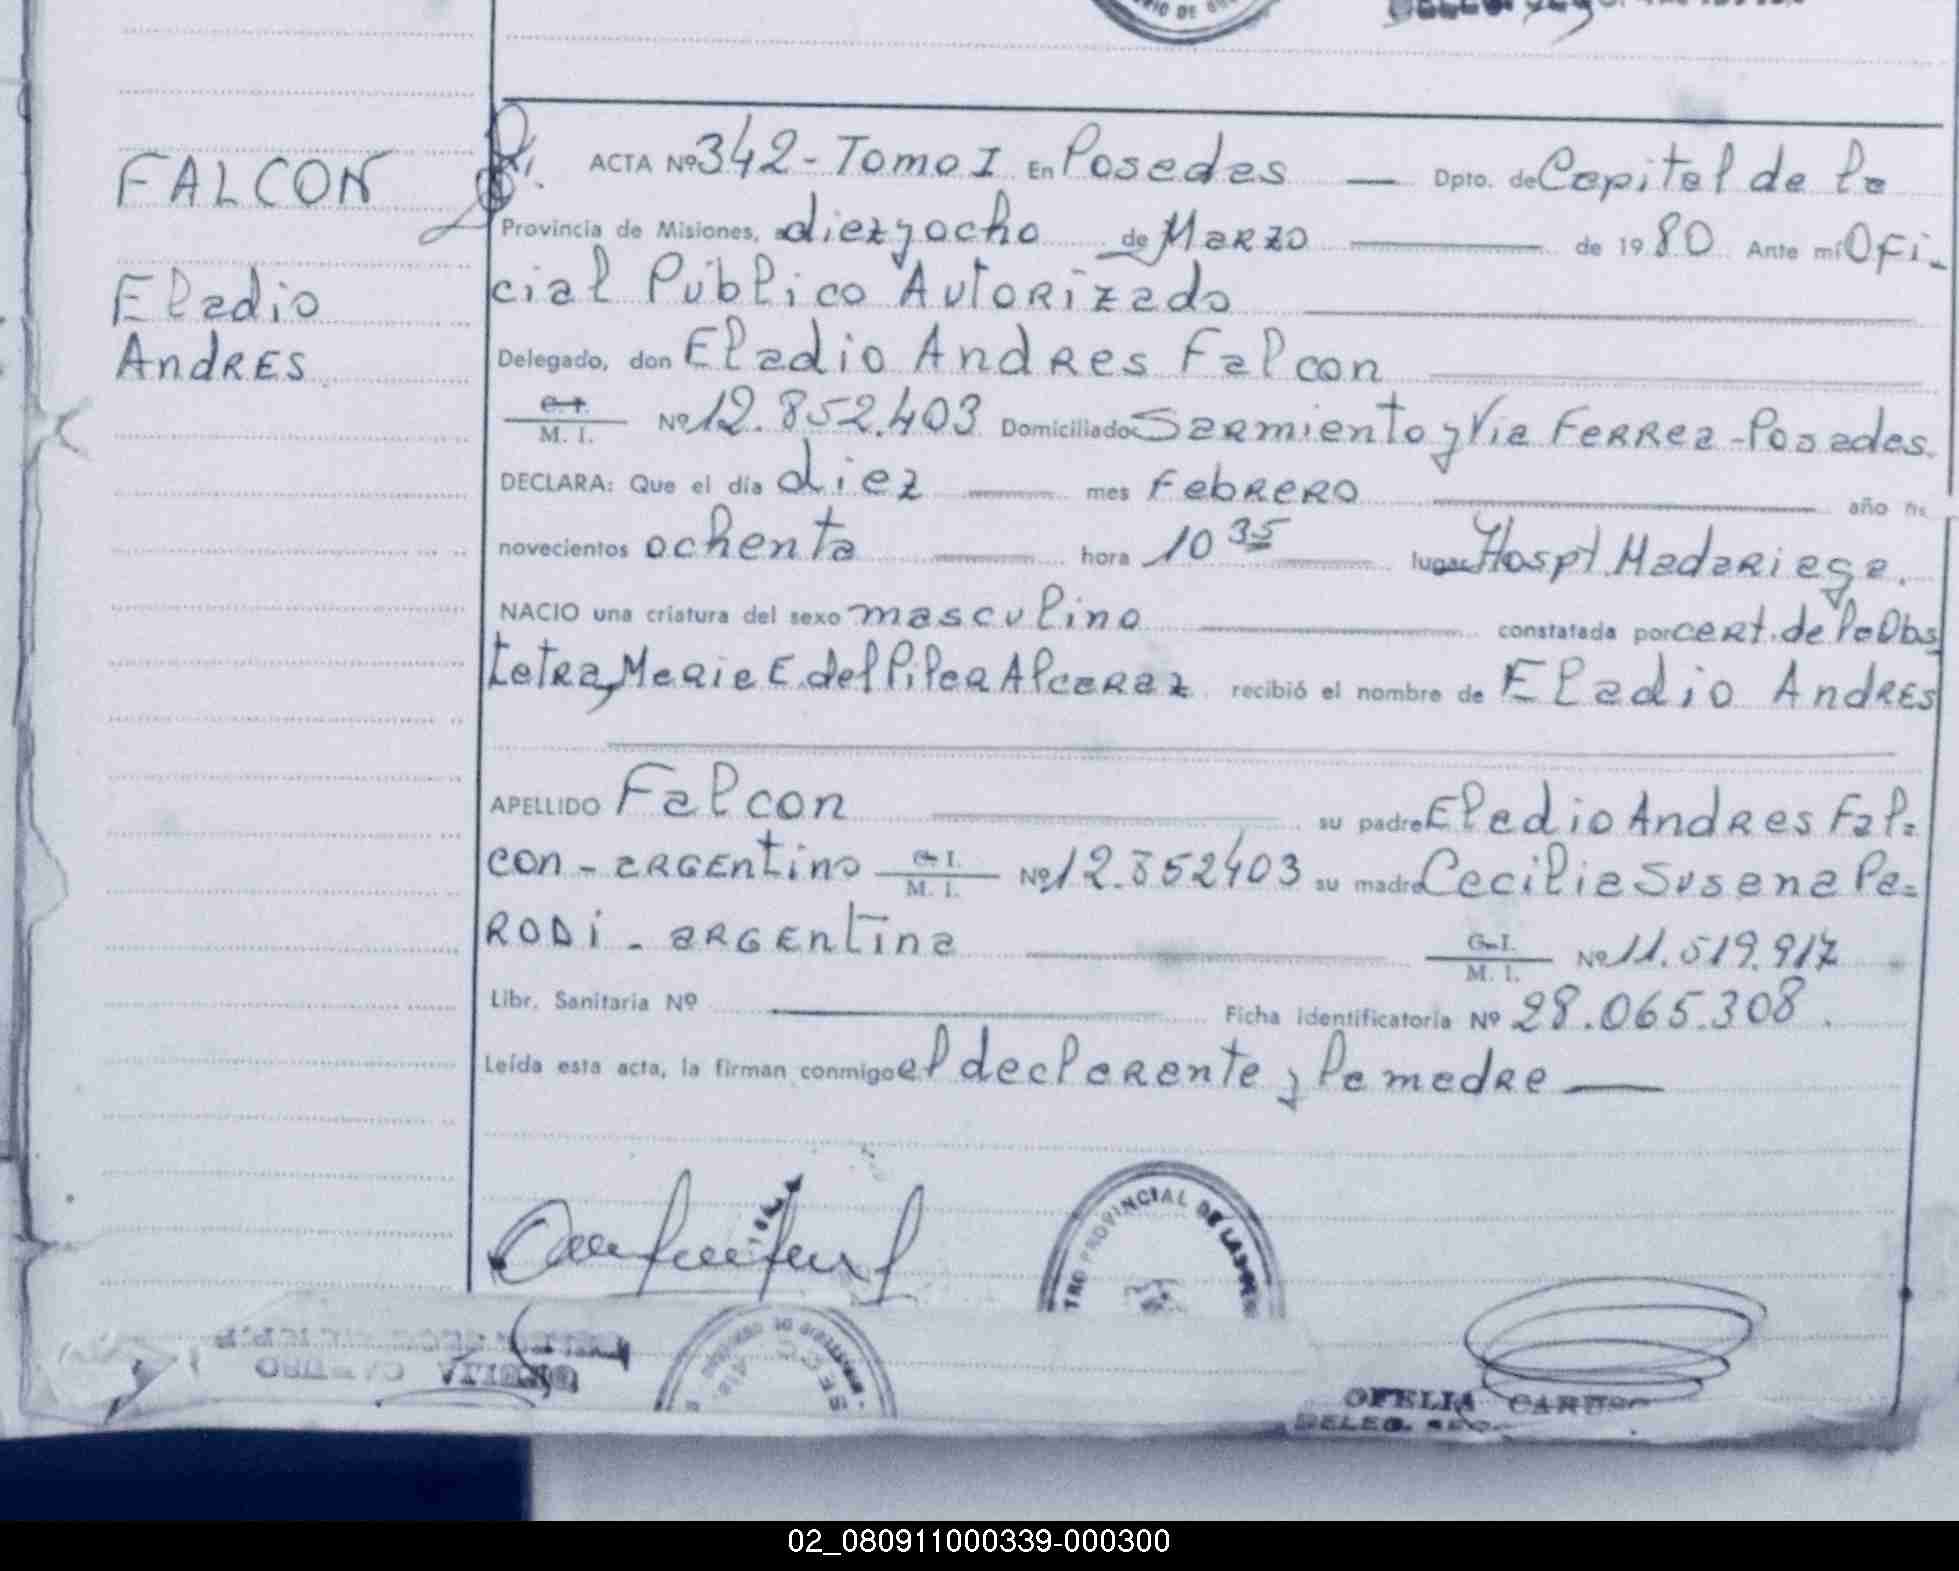 FALCON
Eladio
Andres
ACTA Nº 342 - Tomo I En Posadas — Dpto. de Capital de la
Provincia de Misiones, a diez y ocho de Marzo de 1980 Ante mi Ofi-
cial Público Autorizado
Delegado, don Eladio Andres Falcon
C. I. M. I. Nº 12.852.403 Domiciliado Sarmiento y Via Ferrea - Posadas.
DECLARA: Que el día diez mes Febrero año
novecientos ochenta hora 10 35 lugar Hospt. Madariaga.
NACIO una criatura del sexo masculino constatada por cert. de la Obs
tetra, Maria E. del Pilar Alcaraz recibió el nombre de Eladio Andres
APELLIDO Falcon su padre Eladio Andres Fal=
con - argentino C. I. M. I. Nº 12.852403 su madre Cecilia Susana Pa=
rodi - argentina C. I. M. I. Nº 11.519.917
Libr. Sanitaria Nº Ficha identificatoria Nº 28.065.308.
Leída esta acta, la firman conmigo el declarante y la madre —
PROVINCIAL DE LAS
OFELIA CARUSO
DELEG. SEC.
02_080911000339-000300